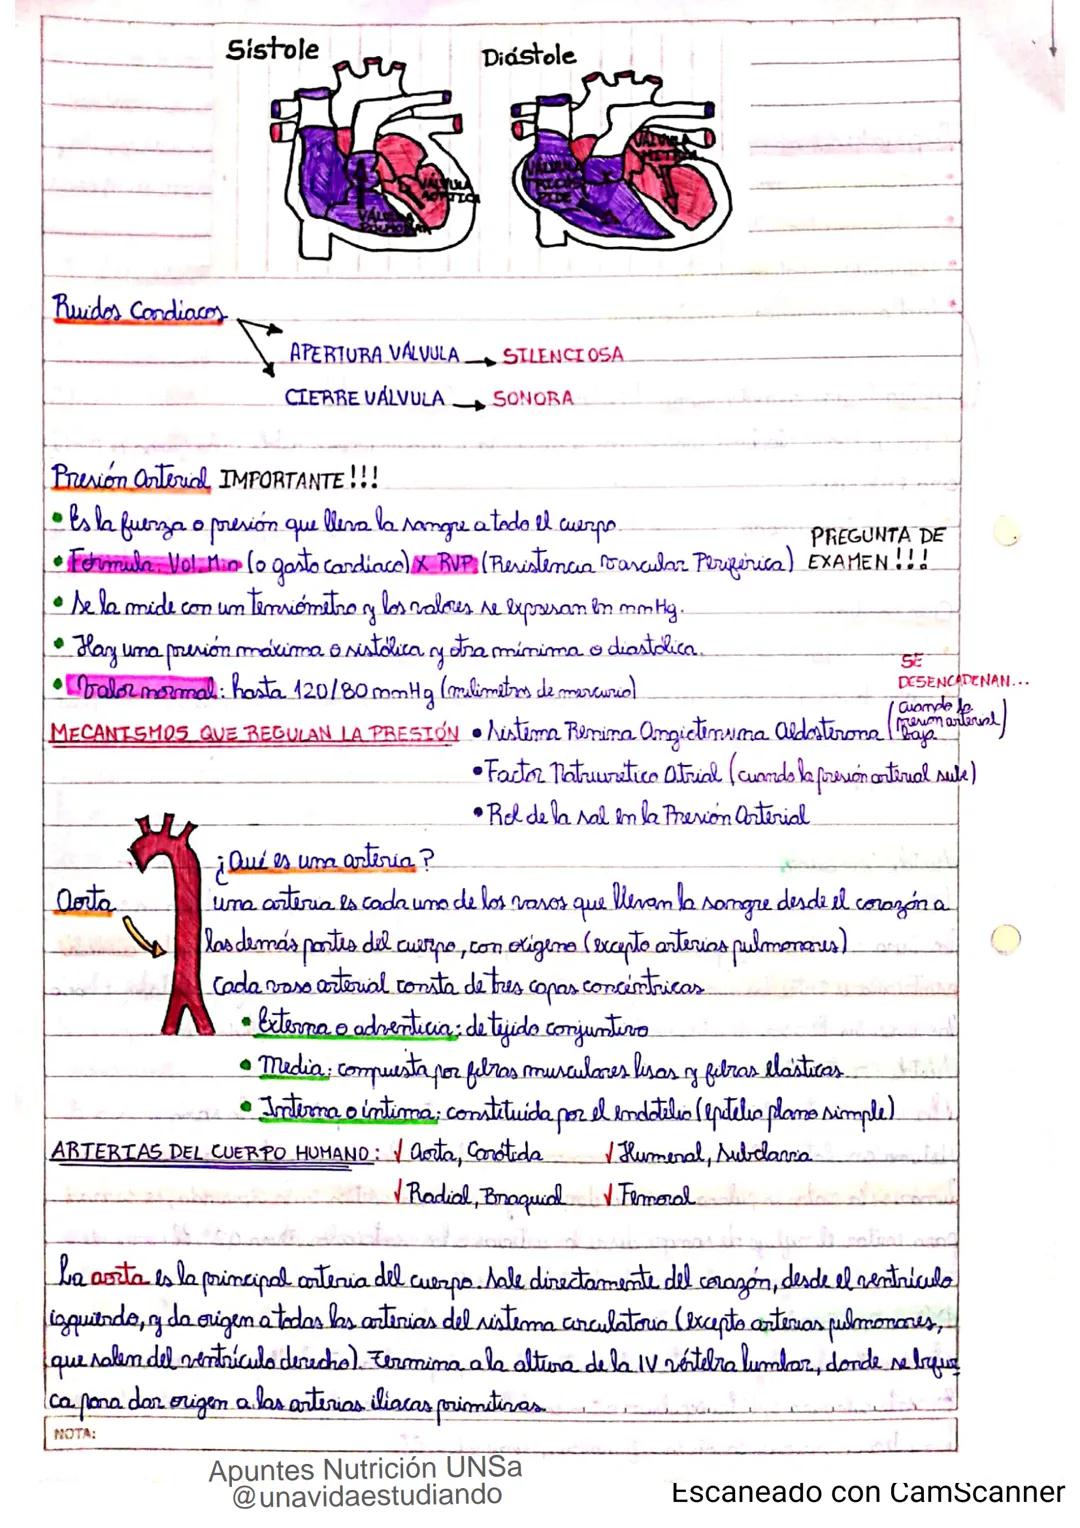 Sístole
Diástole
VÁLVULA AÓRTICA
VÁLVULA PULMONAR
VÁLVULA TRICÚSPIDE
VÁLVULA MITRAL
Ruidos Cardiacos
APERTURA VÁLVULA → SILENCIOSA
CIERRE VÁLVULA → SONORA
Presión arterial IMPORTANTE!!!
• Es la fuerza o presión que lleva la sangre a todo el cuerpo.
• Fórmula: Vol. Min (o gasto cardíaco) X RVP. (Resistencia Vascular Periférica) PREGUNTA DE EXAMEN!!!
• Se la mide con un tensiómetro y los valores se expresan en mmHg.
• Hay una presión máxima o sistólica y otra mínima o diastólica.
• Valor normal: hasta 120/80 mmHg (milímetros de mercurio)
SE DESENCADENAN...
MECANISMOS QUE REGULAN LA PRESIÓN • Sistema Renina Angiotensina Aldosterona (cuando la presión arterial baja)
• Factor Natriurético Atrial (cuando la presión arterial sube)
• Rol de la sal en la Presión Arterial
¿Qué es una arteria?
Aorta
una arteria es cada uno de los vasos que llevan la sangre desde el corazón a
las demás partes del cuerpo, con oxígeno (excepto arterias pulmonares)
Cada vaso arterial consta de tres capas concéntricas
• Externa o adventicia: de tejido conjuntivo
• Media: compuesta por fibras musculares lisas y fibras elásticas.
• Interna o íntima: constituida por el endotelio (epitelio plano simple)
ARTERIAS DEL CUERPO HUMANO: √ Aorta, Carótida √ Humeral, Subclavia
√ Radial, Braquial √ Femoral
La aorta es la principal arteria del cuerpo. Sale directamente del corazón, desde el ventrículo
izquierdo, y da origen a todas las arterias del sistema circulatorio (excepto arterias pulmonares,
que salen del ventrículo derecho). Termina a la altura de la IV vértebra lumbar, donde se bifur
ca para dar origen a las arterias ilíacas primitivas
NOTA:
Apuntes Nutrición UNSa
@unavidaestudiando
Escaneado con CamScanner